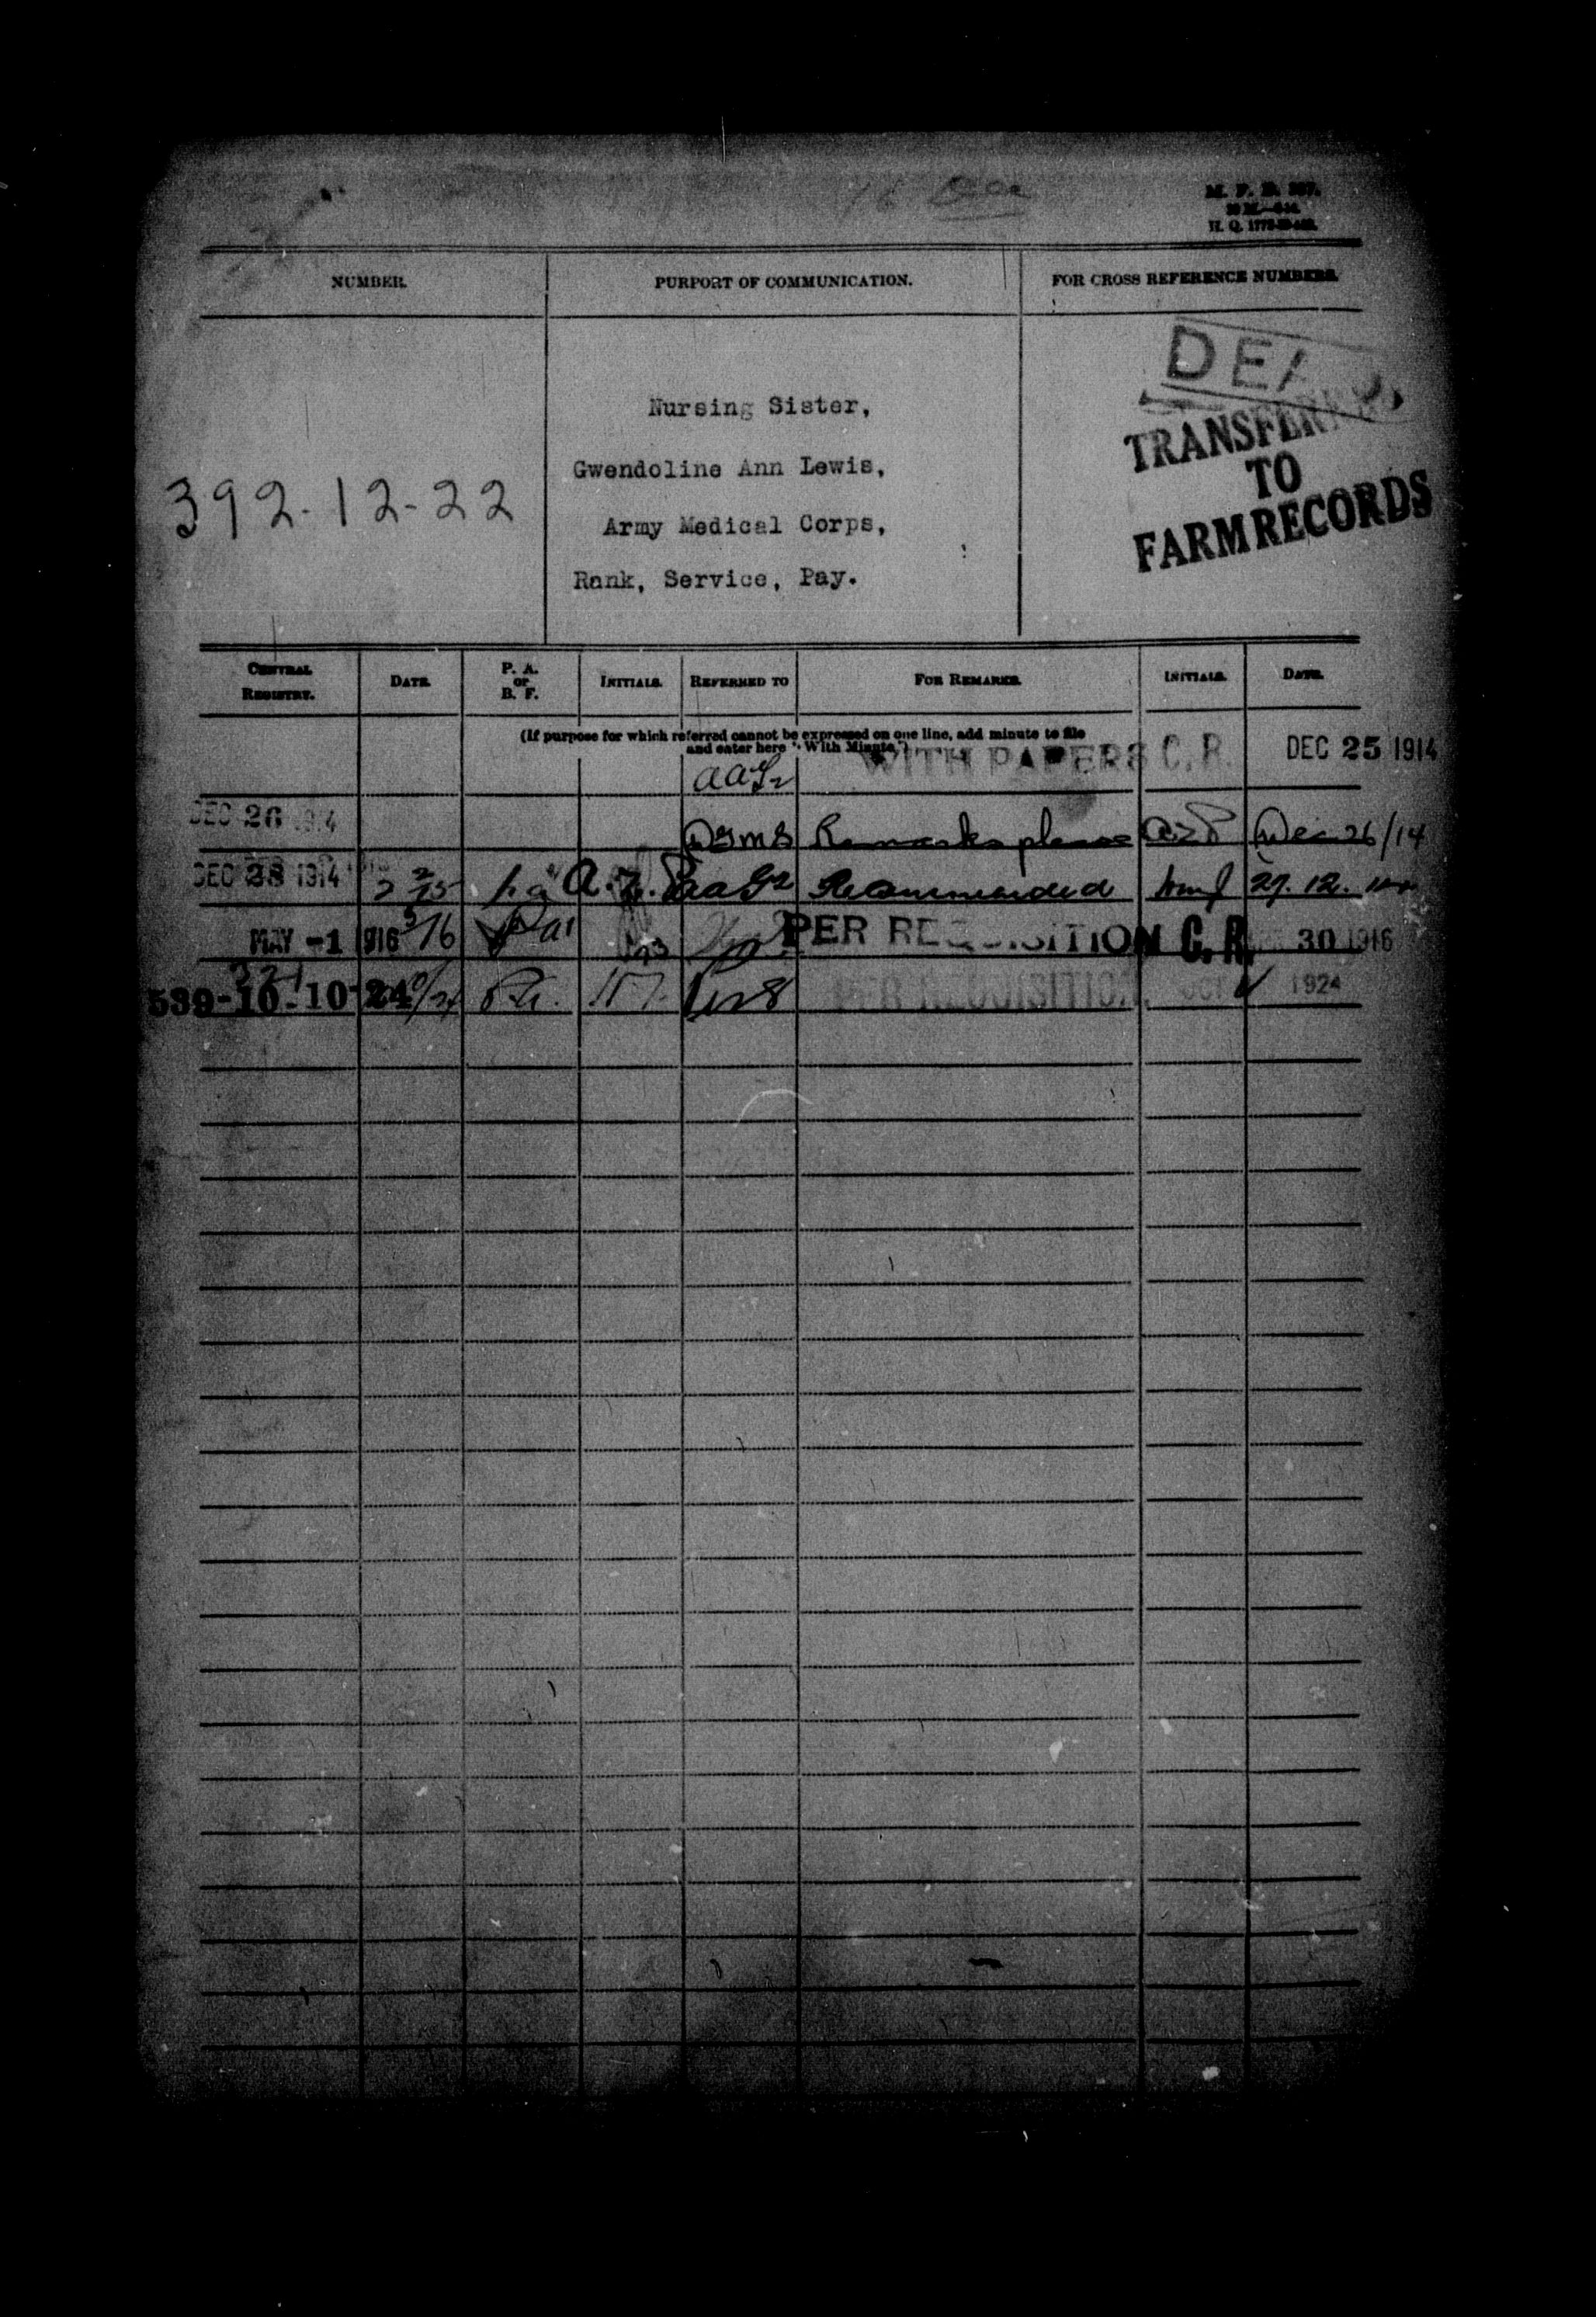 NUMBER.
PURPORT OF COMMUNICATION.
FOR CROSS REFERENCE NUMBERS.
392-12-22
Nursing Sister,
Gwendoline Ann Lewis,
Army Medical Corps,
Rank, Service, Pay.
TRANSFERRED
TO
FARM RECORDS
CENTRAL REGISTRY.
DATE
P. A. or B. F.
INITIALS.
REFERRED TO
FOR REMARKS
INITIALS.
DATE.
(If purpose for which referred cannot be expressed on one line, add minute to file
and enter here "With Minute")
WITH PAPERS C. R. DEC 25 1914
DEC 26 1914 DGMS Remarks please Dec 26/14
DEC 28 1914 Recommended 29. 12.
MAY -1 1916 PER REQUISITION C. R. 30 1916
539-10-10-24 PER REQUISITION OCT 1924